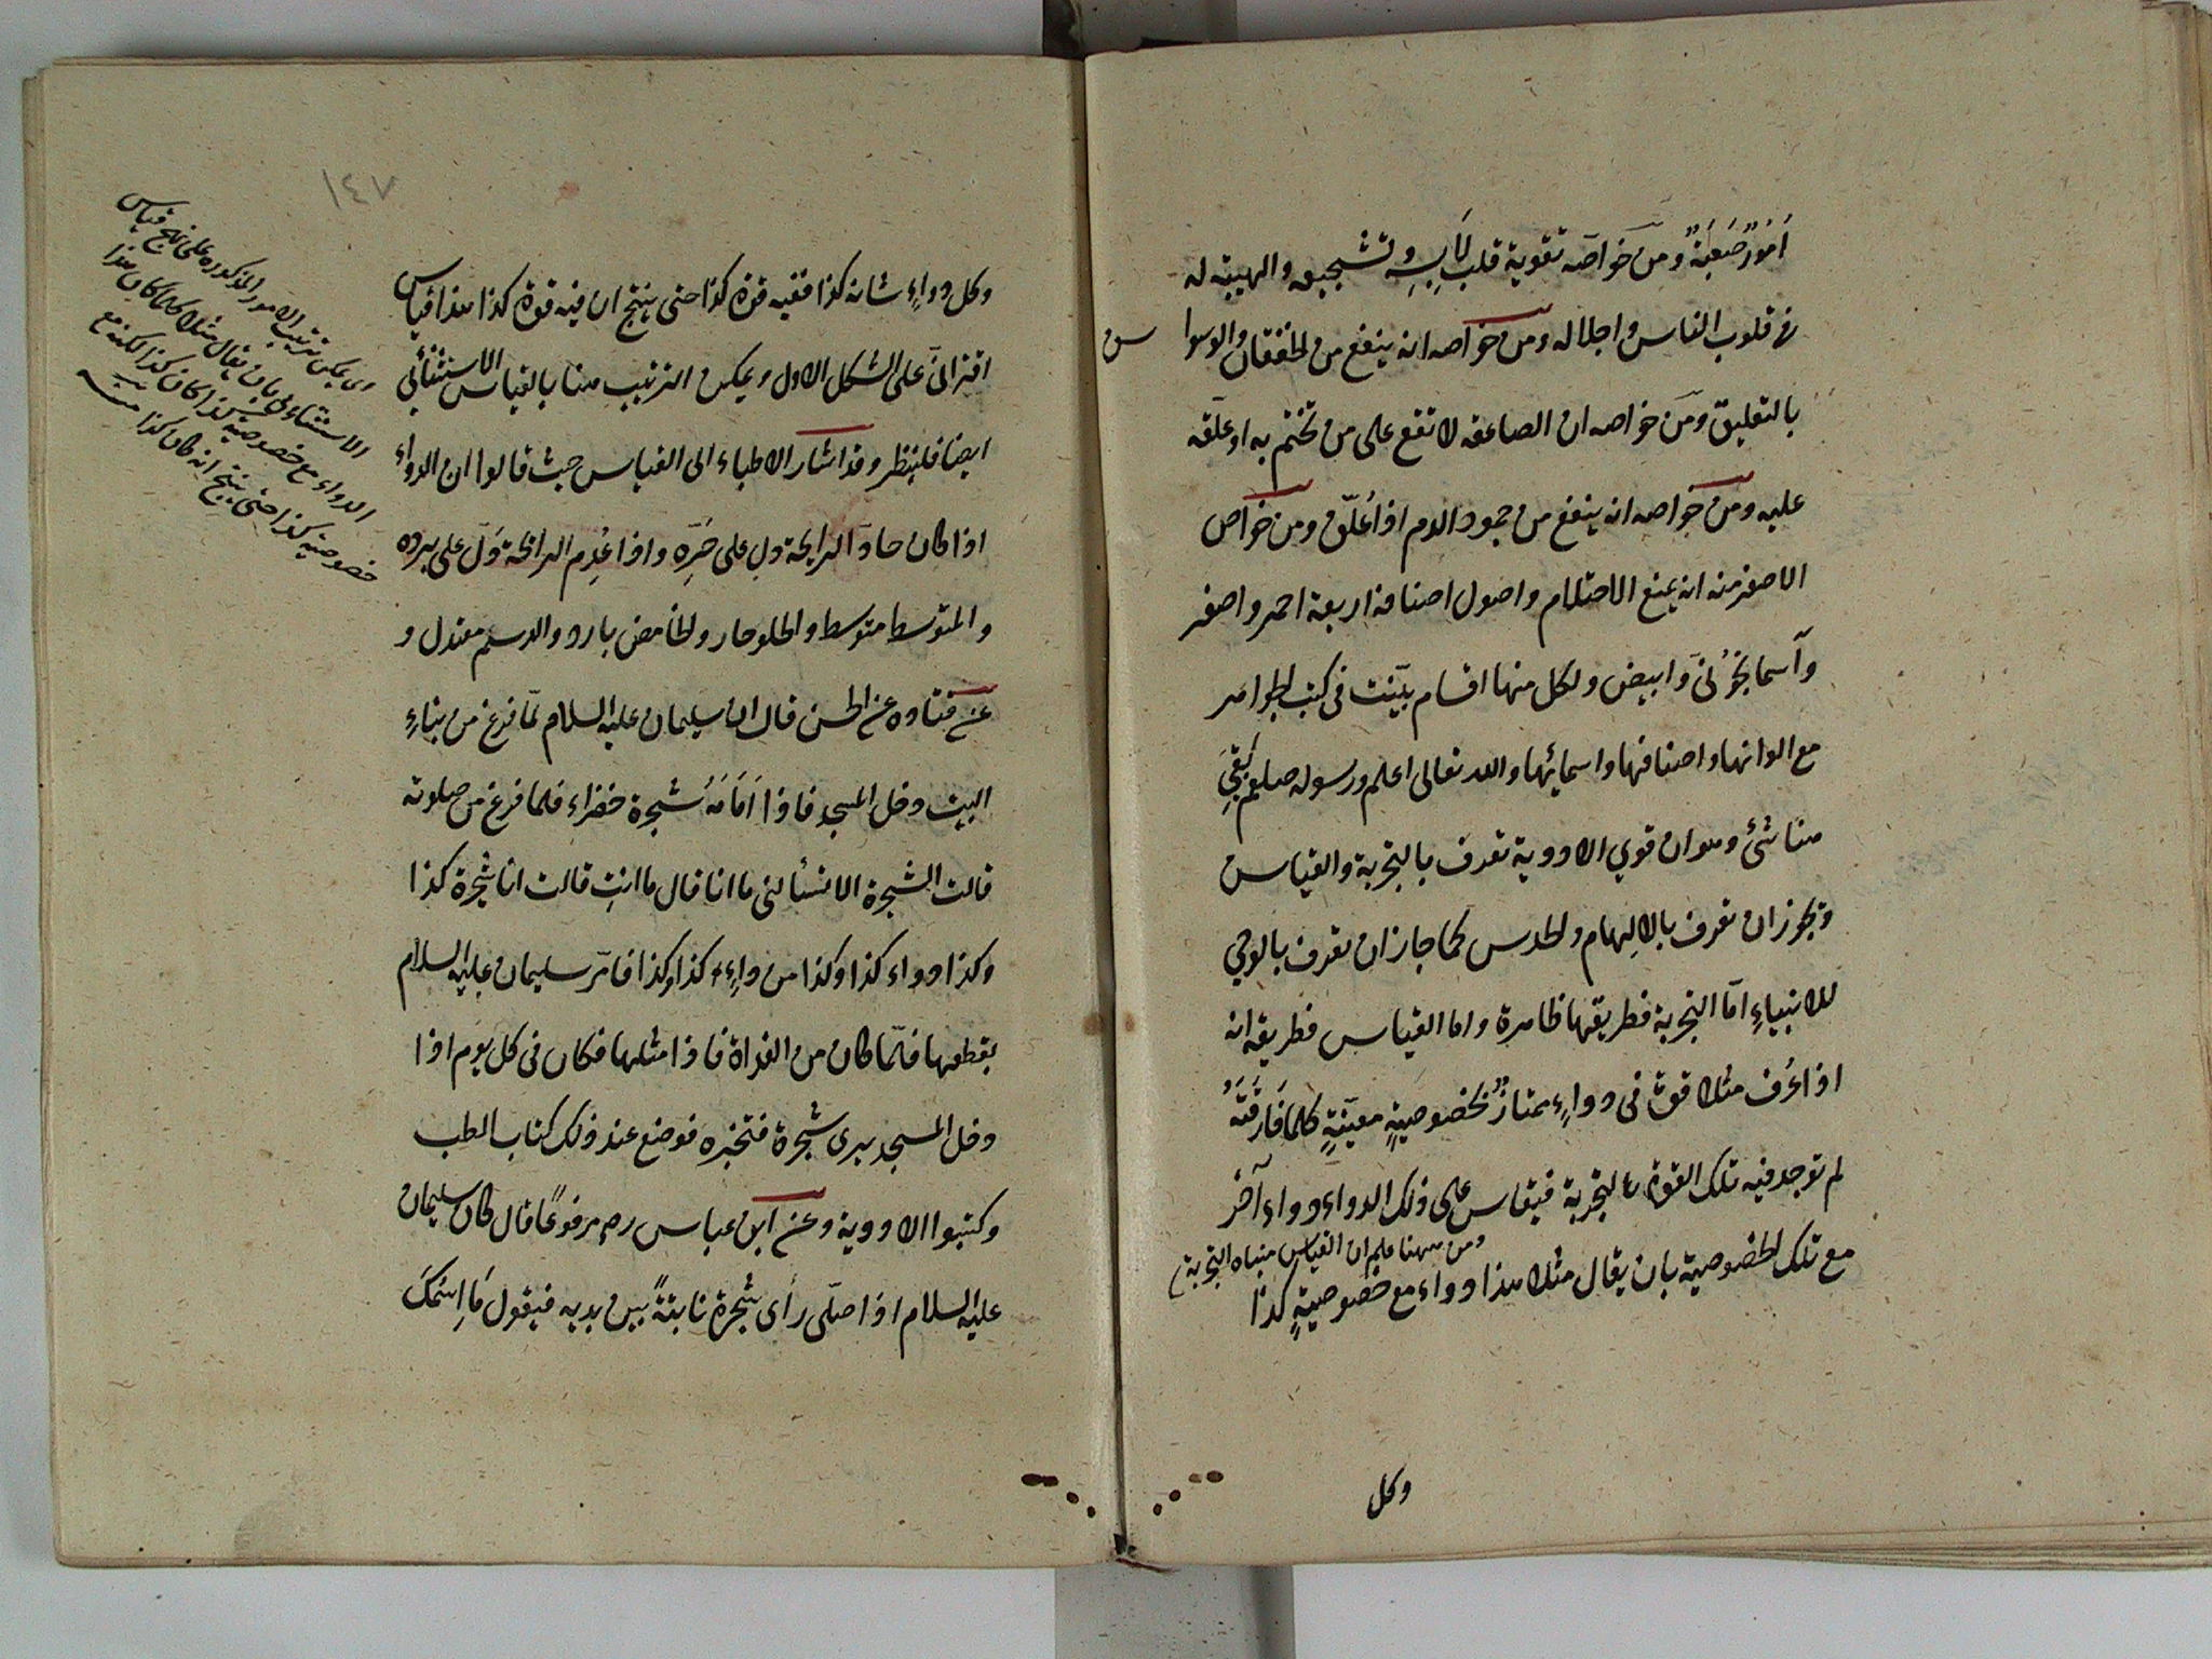 اُمُورٌ صَعْبَةٌ ومن خواصه تقوية قلب لابِسِهِ وتشجيعه والهيبة له
فى قلوب الناس واجلاله ومن خواصه انه ينفع من الخفقان والوسواس
بالتعليق ومن خواصه ان الصاعقه لا تقع على من تختم به او علّقه
عليه ومن خواصه انه ينفع من جمود الدم اذا عُلّق ومن خواص
الاصفر منه انه يمنع الاحتلام واصول اصنافه اربعة احمر واصفر
وآسمانجُونى وابيض ولكل منها اقسام بيّنت فى كتب الجواهر
مع الوانها واصنافها واسمائها والله تعالى اعلم ورسوله صلعم بَقِيَ
هنا شئ وهو ان قوي الادوية تعرف بالتجربة والقياس
ويجوز ان تعرف بالالهام والحدس كما جاز ان تعرف بالوحي
للانبياءِ امّا التجربة فطريقها ظاهرة واما القياس فطريقه انه
اذا عُرف مثلا قوة فى دواءٍ ممتازٌ بخصوصيةٍ معيّنةٍ كلما فَارَقَتْهُ
لم توجد فيه تلك القوة بالتجربة فيقاس على ذلك الدواء دواء آخر
ومن ههنا علم ان القياس مبناه التجربة
مع تلك الخصوصية بان يقال مثلا هذا دواء مع خصوصيةٍ كذا
وكل
١٤٧
وكل دواءٍ شانه كذا ففيه قوة كذا حتى ينتج ان فيه قوة كذا هذا قياس
اقترانىّ على الشكل الاول ويمكن الترتيب هنا بالقياس الاستثنائي
ايضا فلينظر وقد اشار الاطباء الى القياس حيث قالوا ان الدواء
اذا كان حادّ الرايحة دل على حَرِّه واذا عُدِم الرائحة دَلّ على برده
والمتوسط متوسط والحلو حار والحامض بارد والدسم معتدل و
عن قتاده عن الحسن قال ان سليمان عليه السلام لمّا فرغ من بناءِ
البيت دخل المسجد فاذا اَمَامَهُ شجرة خضراء فلما فرغ من صلوته
قالت الشجرة الا تسألنى ما انا قال ما انتِ قالت انا شجرة كذا
وكذا دواء كذا وكذا من داءِ كذا وكذا فامَر سليمان عليه السلام
بقطعها فلمّا كان من الغداة فاذا مثلها فكان فى كل يوم اذا
دخل المسجد يرى شجرة فتخبره فوضع عند ذلك كتاب الطب
وكتبوا الادوية وعن ابن عباس رض مرفوعًا قال كان سليمان
عليه السلام اذا صلّى رأى شجرة نابتةً بين يديه فيقول مَا اِسْمُكِ
اى يمكن ترتيب الامور المذكوره على نهج قياس
الاستثنائى بان يقال مثلا كلما كان هذا
الدواء مع خصوصية كذا كان كذا لكنه مع
خصوصية كذا حتى ينتج انه كان كذا منه